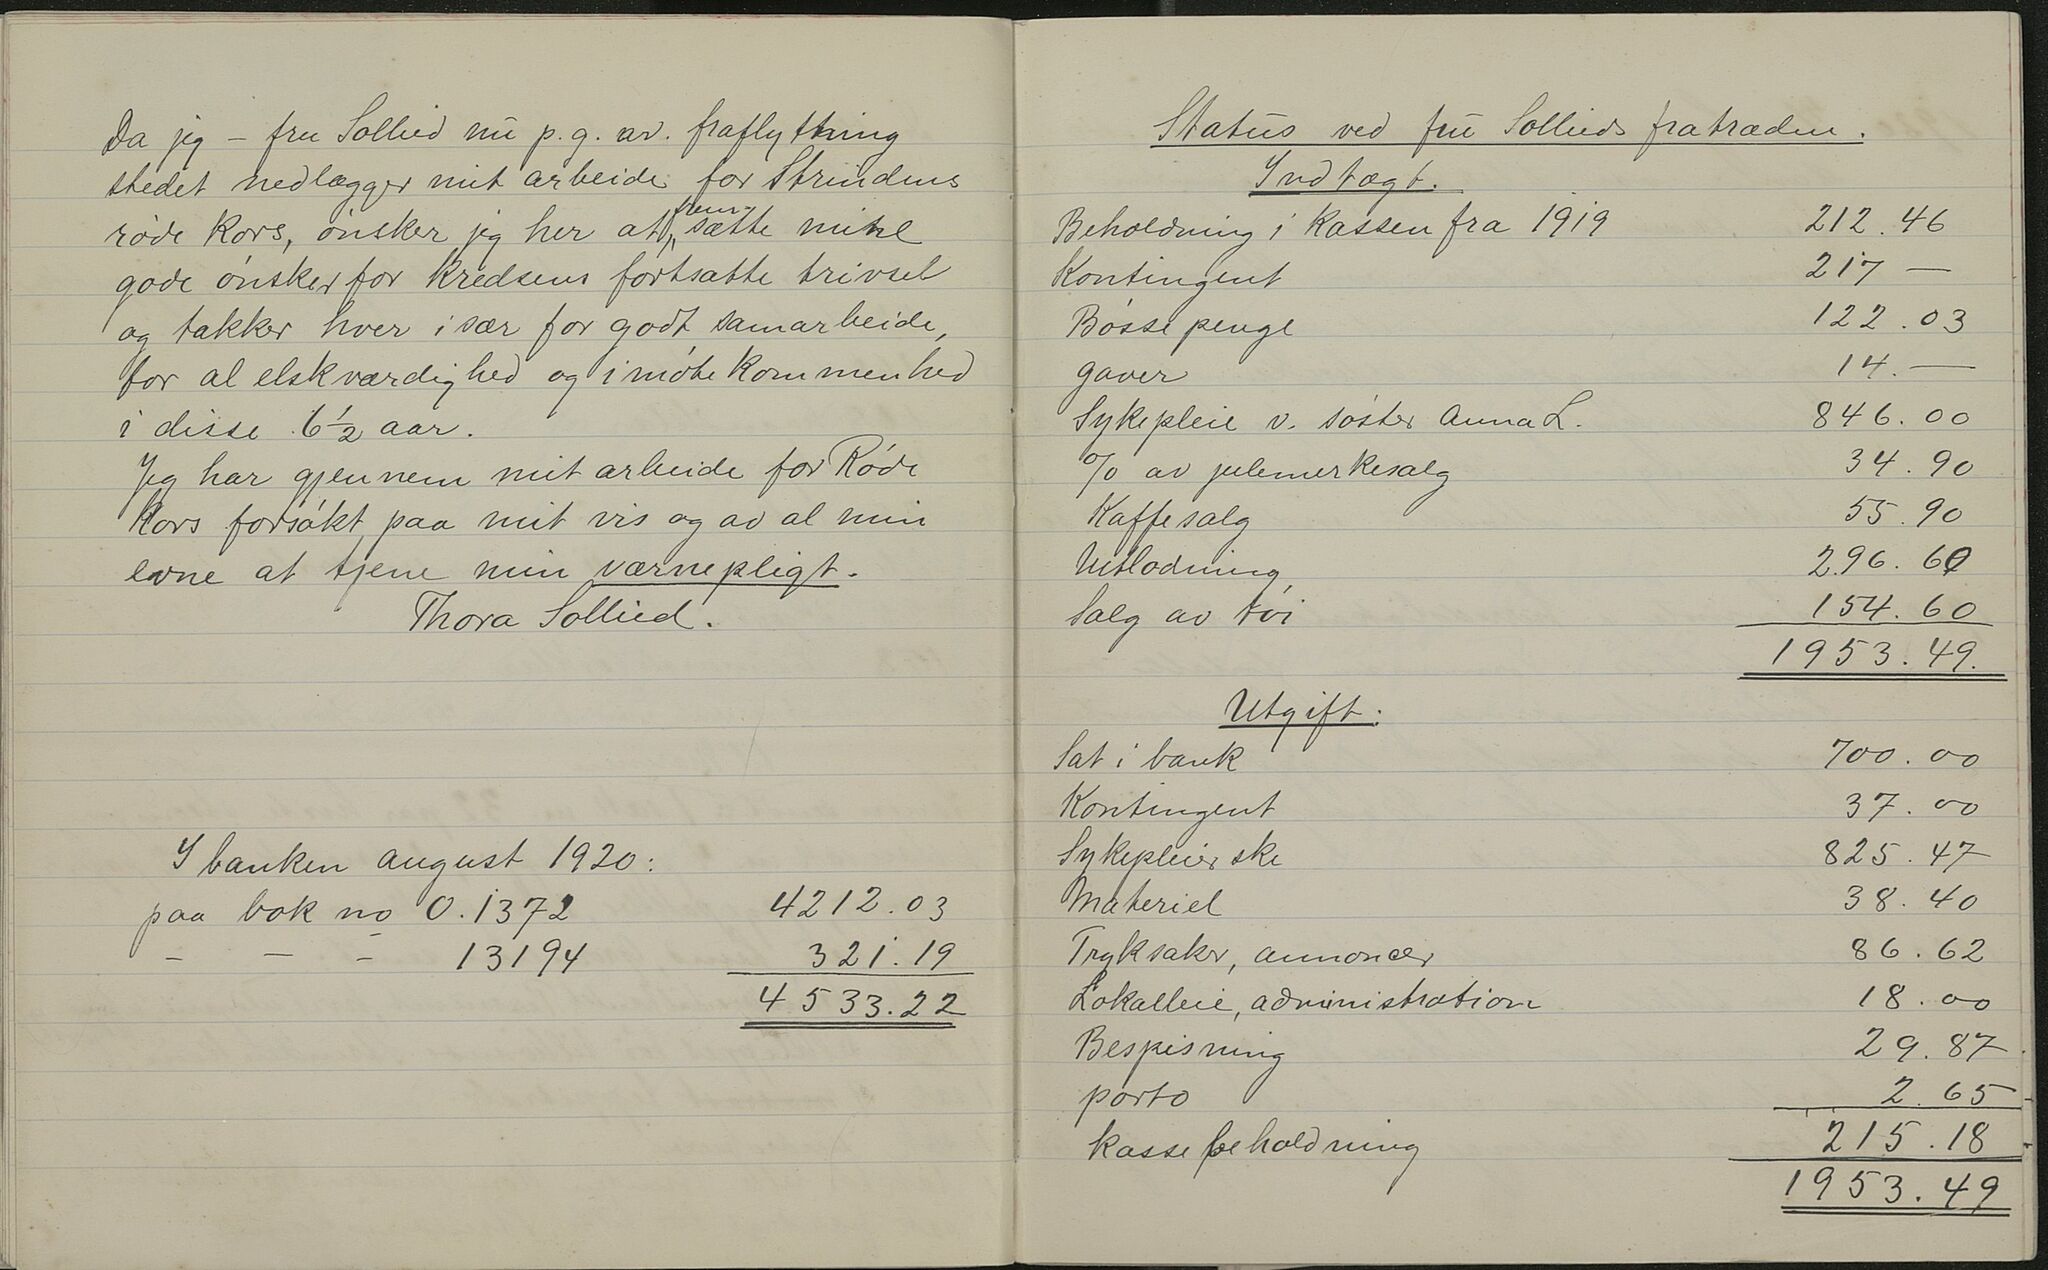 Da jeg – fru Sollied nu p. g. av. fraflytning
stedet nedlægger mit arbeide for Strindens
røde kors, ønsker jeg her at frem-sætte mine
gode ønsker for kredsens fortsatte trivsel
og takker hver især for godt samarbeide,
for al elskværdighed og imøtekommenhed
i disse 6½ aar.
Jeg har gjennem mit arbeide for Røde
Kors forsøkt, paa mit vis og av al min
evne at tjene min værnepligt.
Thora Sollied.
I banken august 1920:
paa bok no 0.1372 4212.03
– – – 13194 321.19
4533.22
Status ved fru Sollieds fratræden.
Indtægt.
Beholdning i kassen fra 1919 212.46
Kontingent 217 —
Bøssepenge 122.03
gaver 14. —
Sykepleie v. søster Anna L. 846.00
% av julemerkesalg 34.90
Kaffesalg 55.90
Utlodning 296.60
Salg av tøi 154.60
1953.49.
Utgift:
Sat i bank 700.00
Kontingent 37.00
Sykepleierske 825.47
Materiel 38.40
Tryksaker, annoncer 86.62
Lokalleie, administration 18.00
Bespisning 29.87
porto 2.65
kassebeholdning 215.18
1953.49